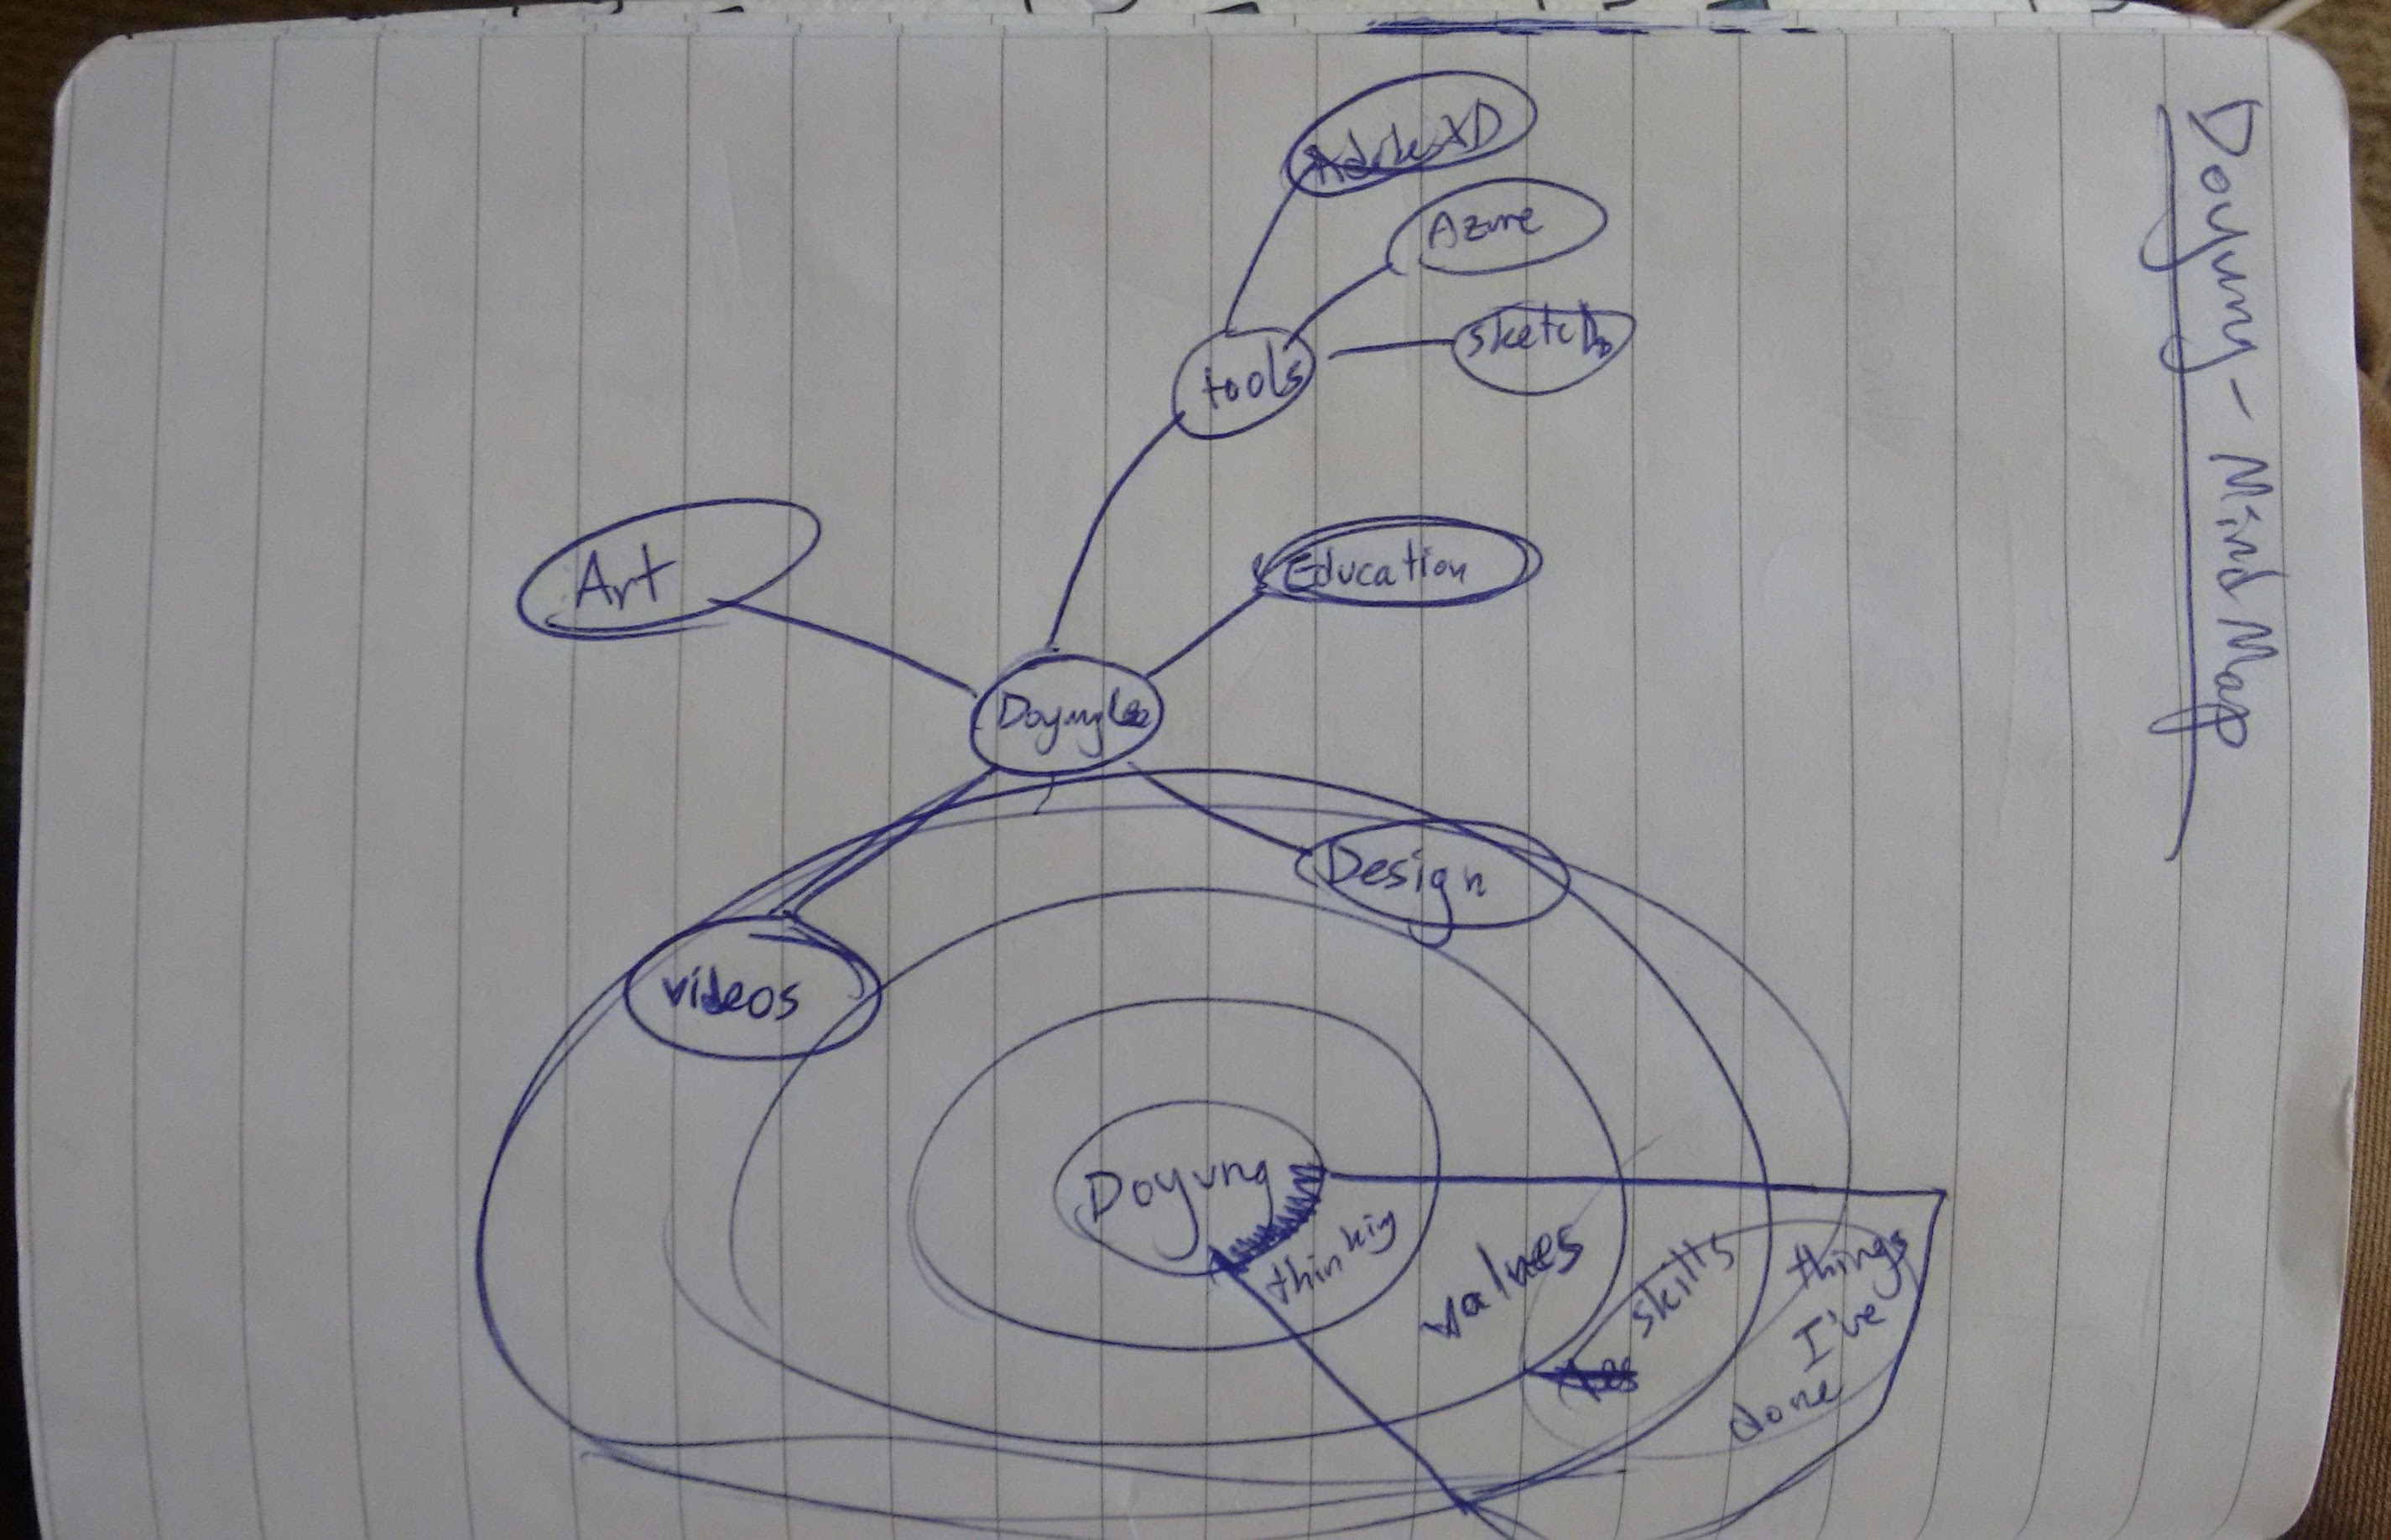 Doyung - Mind Map
Adobe XD
Azure
sketch
tools
Art
Education
Doyung Lee
Design
videos
Doyung
thinkig
values
skills
things
I've
done